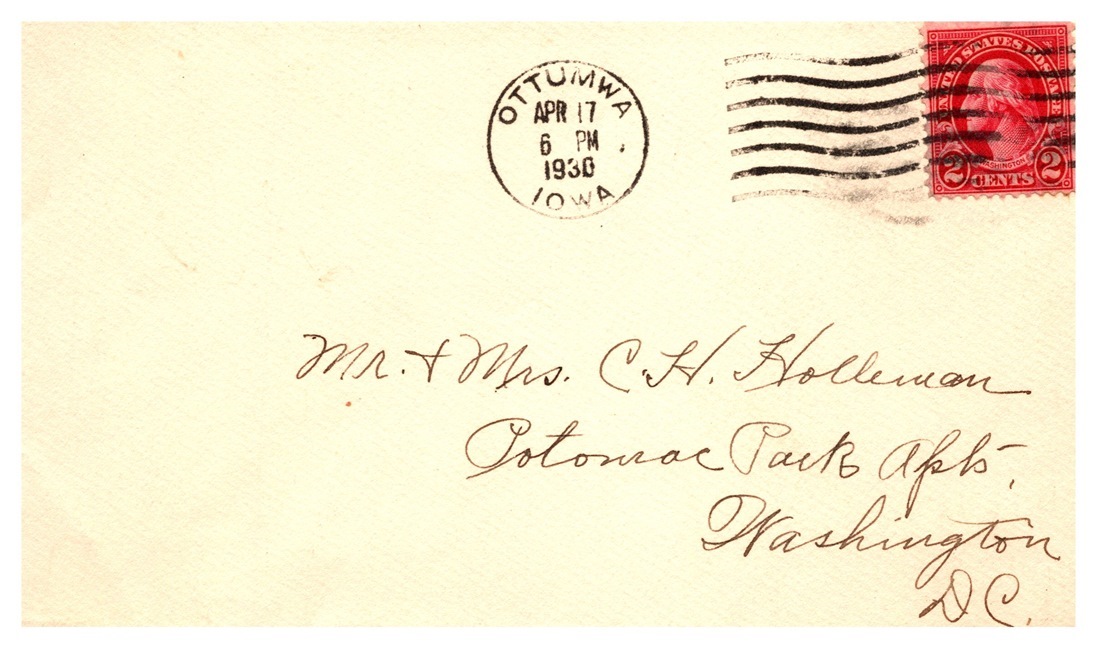 OTTUMWA,
APR 17
6 PM
1930
IOWA
UNITED STATES POSTAGE
WASHINGTON
2 CENTS 2
Mr. & Mrs. C. H. Holleman
Potomac Park Apts.
Washington
D.C.